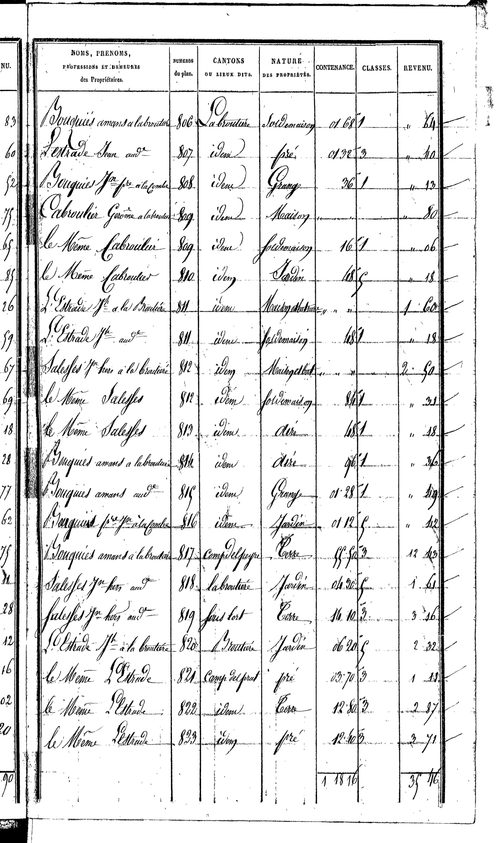 NU. NOMS, PRENOMS, PROFESSIONS ET DEMEURES des Propriétaires. NUMEROS du plan. CANTONS OU LIEUX DITS. NATURE DES PROPRIÉTÉS. CONTENANCE. CLASSES. REVENU.
83 Bouquies amans a labroutiere 806 Labroutiere Soldemaison 01 68 1 " 64
60 Lestrade Jean aud.t 807 idem pré 01 32 3 " 40
52 Bouquies J.n p.re a la Combe 808 idem Grange 36 1 " 13
75 Cabroulier Gerome a labroutiere 809 idem Maison " " " 80
65 le Même Cabroulier 809 idem soldemaison 16 1 " 06
85 le Même Cabroulier 810 idem Jardin 48 5 " 18
26 L'Estrade J.h a la Broutiere 811 idem " " 1 60
59 L'Estrade J.h aud.t 811 idem soldemaison 48 1 " 18
67 Salesses J.n hers a la broutiere 812 idem " " " 2 50
69 le Même Salesses 812 idem soldemaison 84 1 " 31
18 le Même Salesses 813 idem aire 48 1 " 18
28 Bouquies amans a labroutiere 814 idem aire 96 1 " 36
77 Bouquies amans aud.t 815 idem Grange 01 28 1 " 49
62 Bouquies p.re J.n a la Combe 816 idem Jardin 01 12 5 " 42
75 Bouquies amans a labroutiere 817 campdelpeyre Terre 55 50 3 12 43
Salesses J.n hers aud.t 818 labroutiere Jardin 04 30 5 1 61
28 Salesses J.n hers aud.t 819 sous lort Terre 14 10 3 3 16
12 L'Estrade J.h a la broutiere 820 Broutiere Jardin 06 20 5 2 32
16 le Même L'Estrade 821 Camp delprat pré 03 70 3 1 11
02 le Même L'Estrade 822 idem Terre 12 80 3 2 87
20 le Même L'Estrade 823 idem pré 12 40 3 3 71
90 1 18 16 35 46